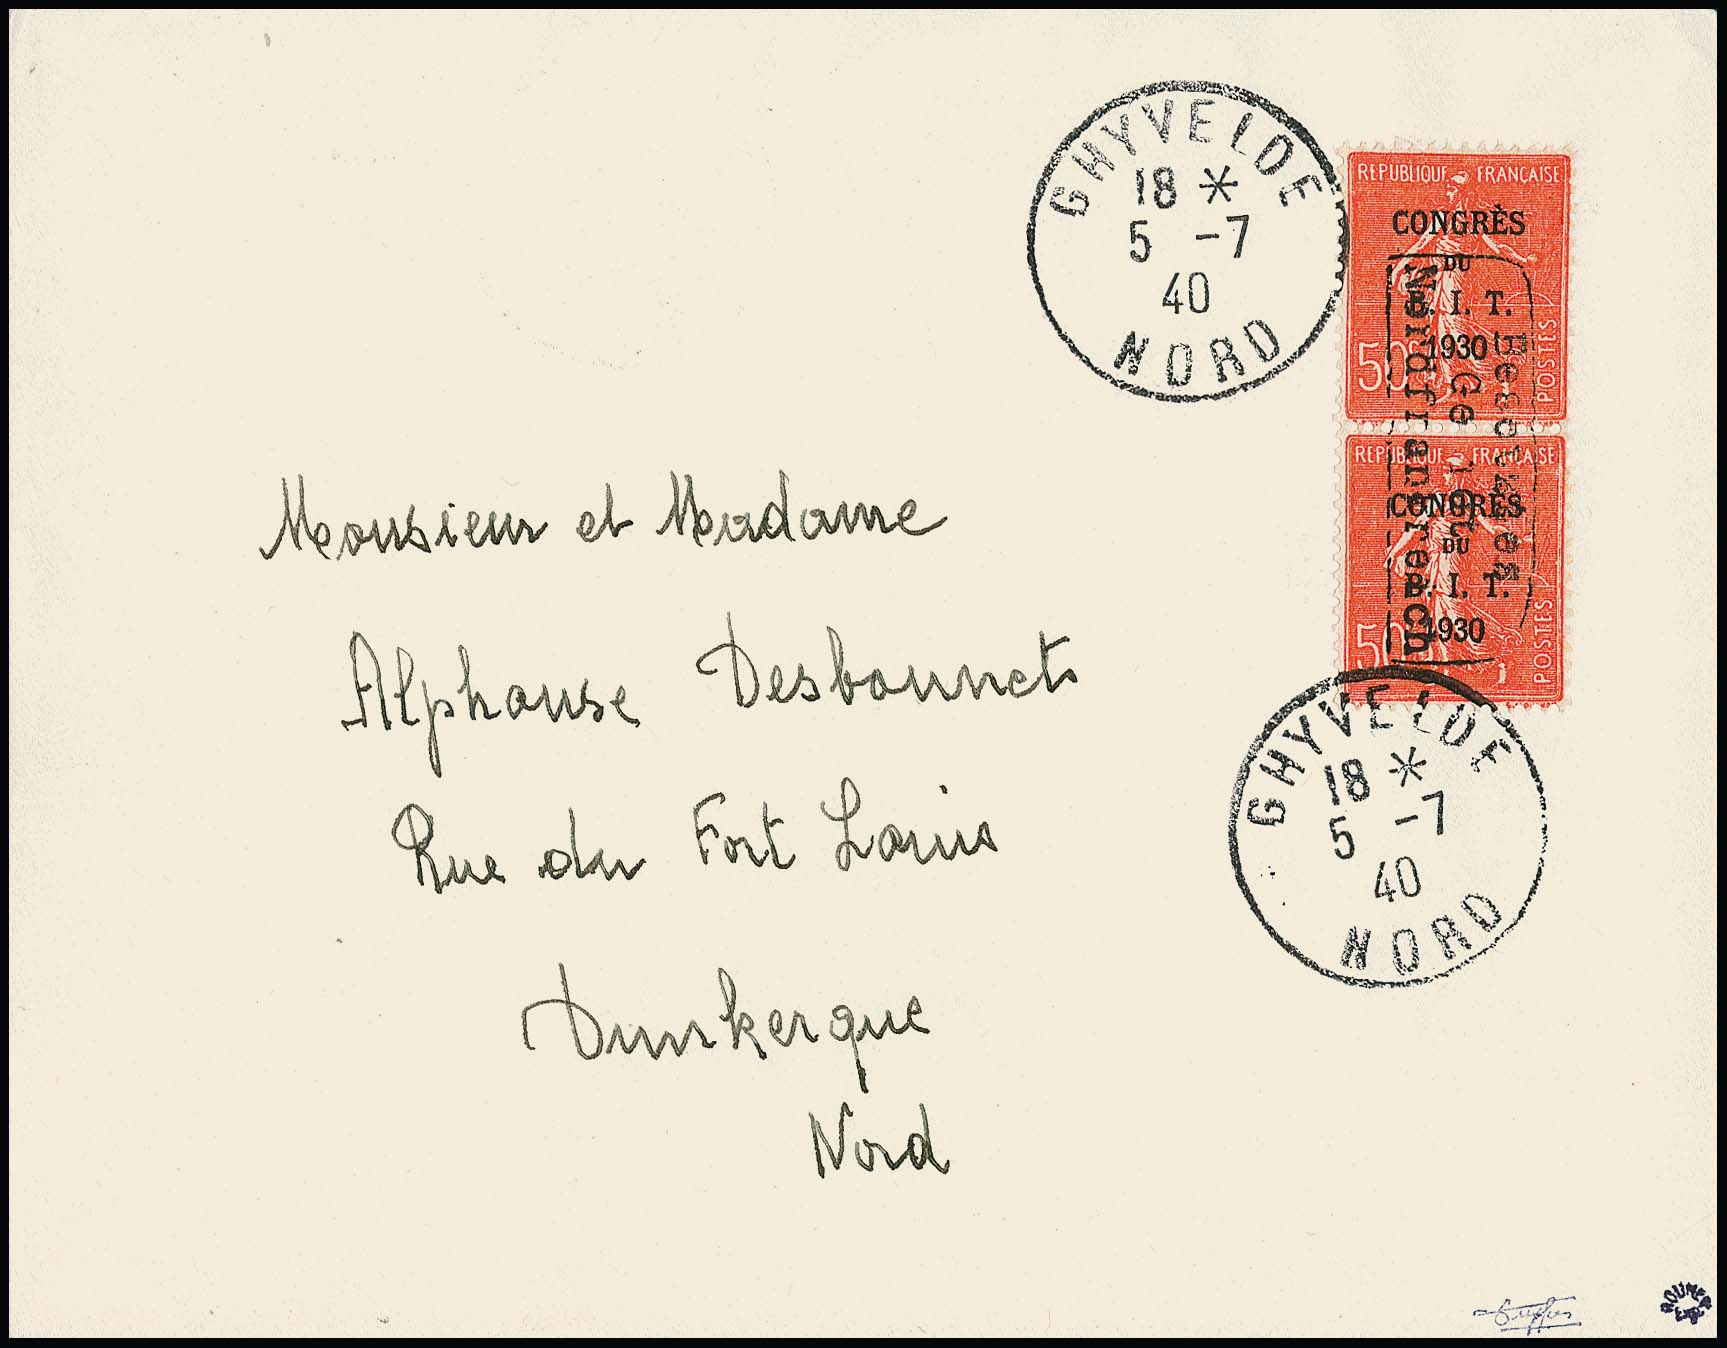 GHYVELDE
18 *
5 -7
40
NORD
REPUBLIQUE FRANÇAISE
CONGRÈS
DU
B. I. T.
1930
50c
POSTES
REPUBLIQUE FRANÇAISE
CONGRÈS
DU
B. I. T.
1930
50
POSTES
Besetztes
Gebiet
Nordfrankreich
GHYVELDE
18 *
5 -7
40
NORD
Monsieur et Madame
Alphonse Desbonnets
Rue du Fort Louis
Dunkerque
Nord
ROUMET